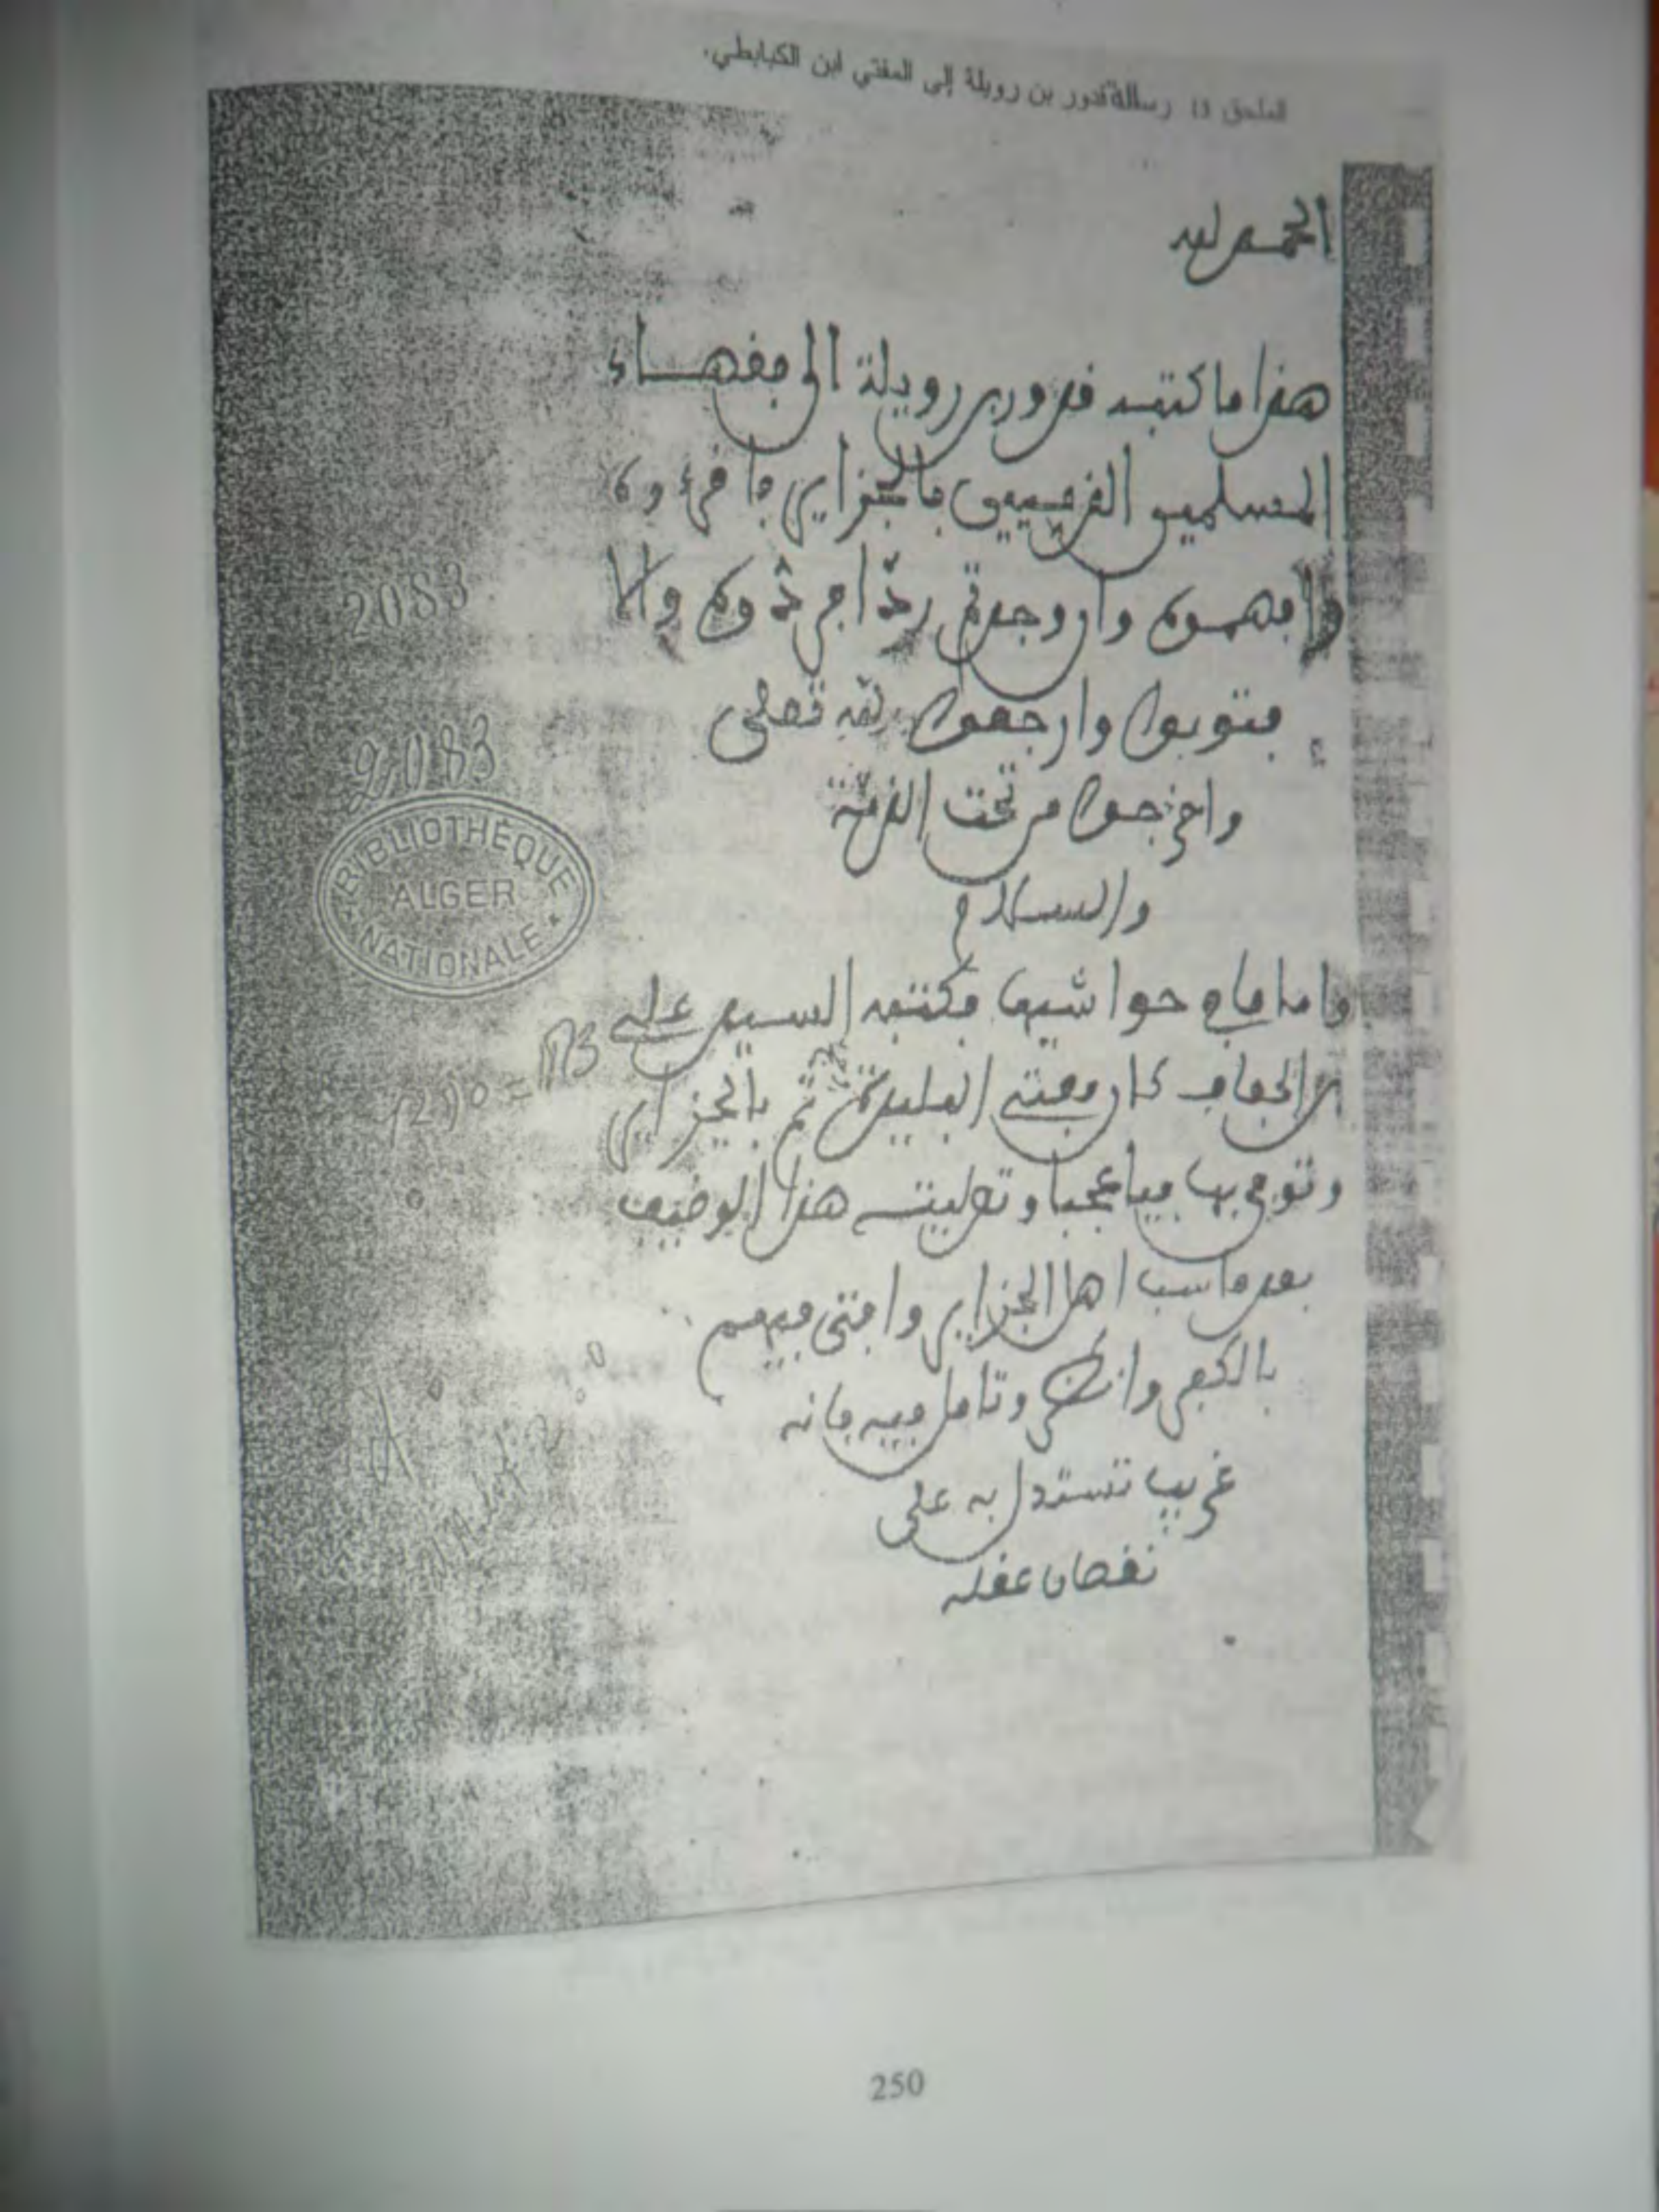 الملحق 13 رسالة قدور بن رويلة إلى المفتي ابن الكبابطي.
الحمد لله
هذا ما كتبه قدور بن رويلة الى فقهاء
المسلمين بالجزاير فاقرءوه
وافهموه وان وجدتم ردّا فردّوه والا
فتوبوا وارجعوا لله تعلى
واخرجوا من تحت الذمّة
والسلام
واما ما في حواشيها فكتبه السيد علي
بن الحفاف كان مفتي البليدة ثم بالجزاير
وتوفي بها فيا عجبا وتوليته هذا الوضيف
بعد ما سب اهل الجزاير وافتى فيهم
بالكفر وانظر وتامل فيه فانه
غريب تستدل به على
نقصان عقله
2083
2083
BIBLIOTHÈQUE
ALGER
NATIONALE
250